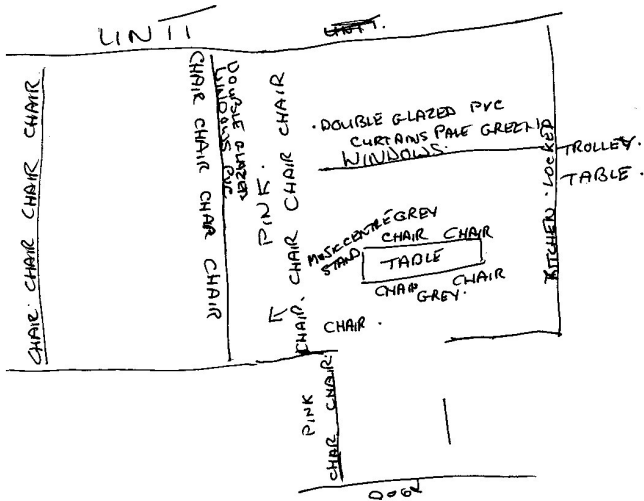 UNIT
UNIT.
CHAIR. CHAIR CHAIR CHAIR
CHAIR CHAIR CHAIR CHAIR
DOUBLE GLAZED
WINDOWS PVC
PINK.
CHAIR. CHAIR CHAIR CHAIR
. DOUBLE GLAZED PVC
CURTAINS PALE GREEN
WINDOWS.
KITCHEN. LOCKED
TROLLEY.
TABLE.
MUSIC CENTRE GREY
STAND.
CHAIR CHAIR
TABLE
CHAIR CHAIR
GREY.
CHAIR.
PINK
CHAIR CHAIR.
DOOR